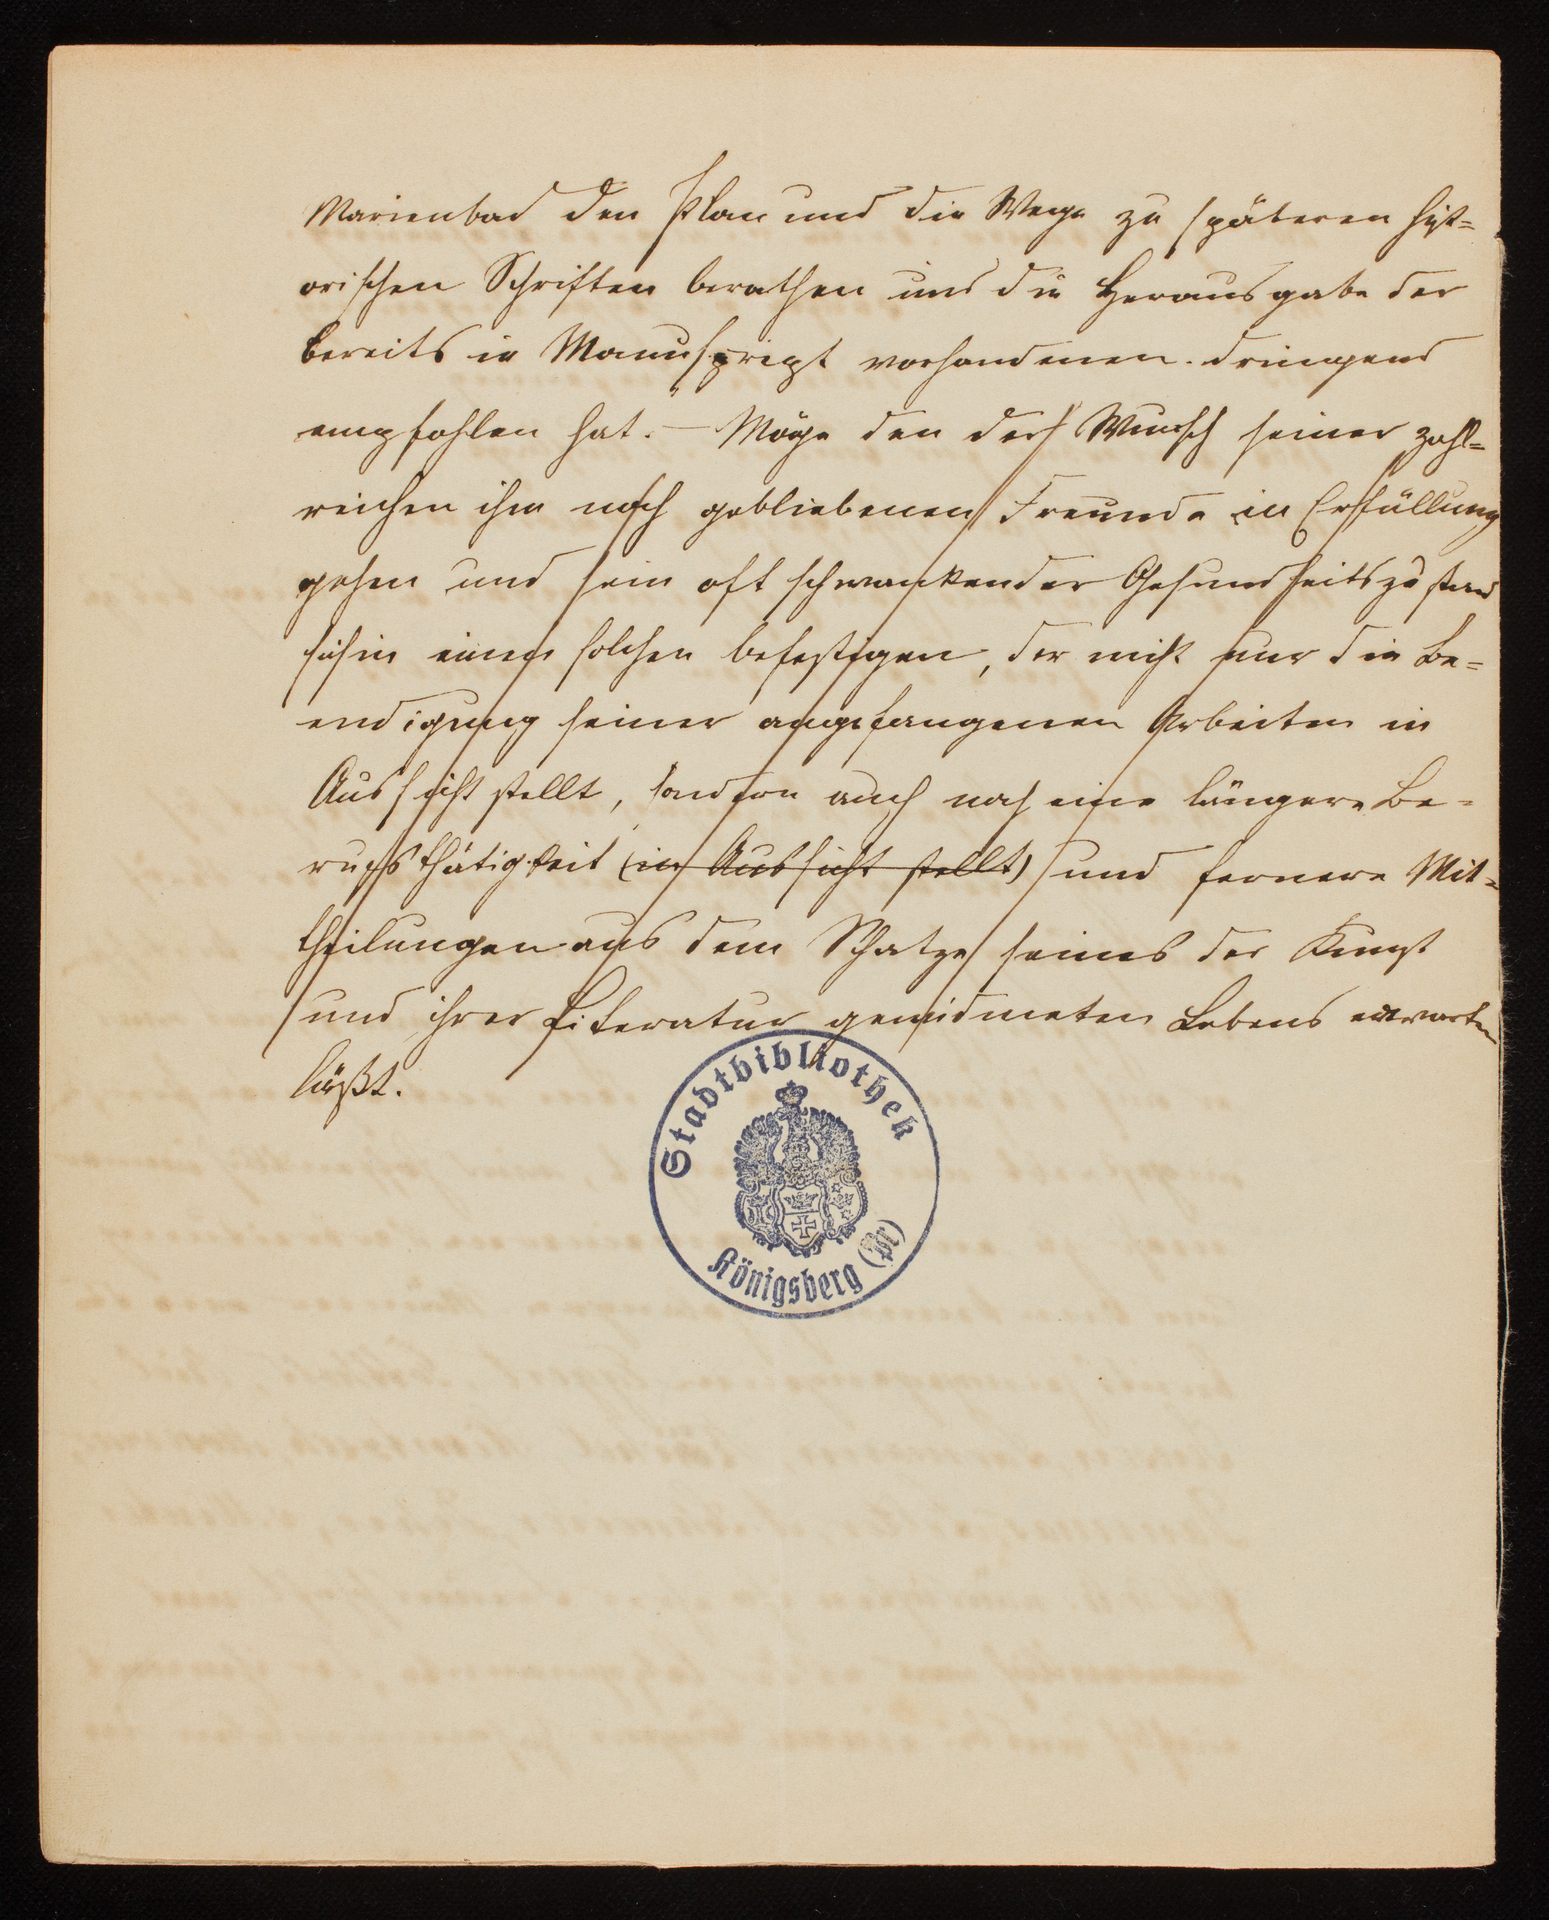 Marienbad den Plan und die Wege zu späteren hist=
orischen Schriften berathen und die Herausgabe der
bereits in Manuskript vorhandenen dringend
empfohlen hat. — Möge den der Wunsch seiner zahl=
reichen ihm noch gebliebenen Freunde in Erfüllung
gehen und sein oft schwankender Gesundheitszustand
sich in einen solchen befestigen, der nicht nur die Be=
endigung seiner angefangenen Arbeiten in
Aussicht stellt, sondern auch noch eine längere Be=
rufsthätigkeit (in Aussicht stellt) und fernere Mit=
theilungen aus dem Schatze seines der Kunst
und ihrer Literatur gewidmeten Lebens erwarten
läßt.
Stadtbibliothek
Königsberg (Pr)